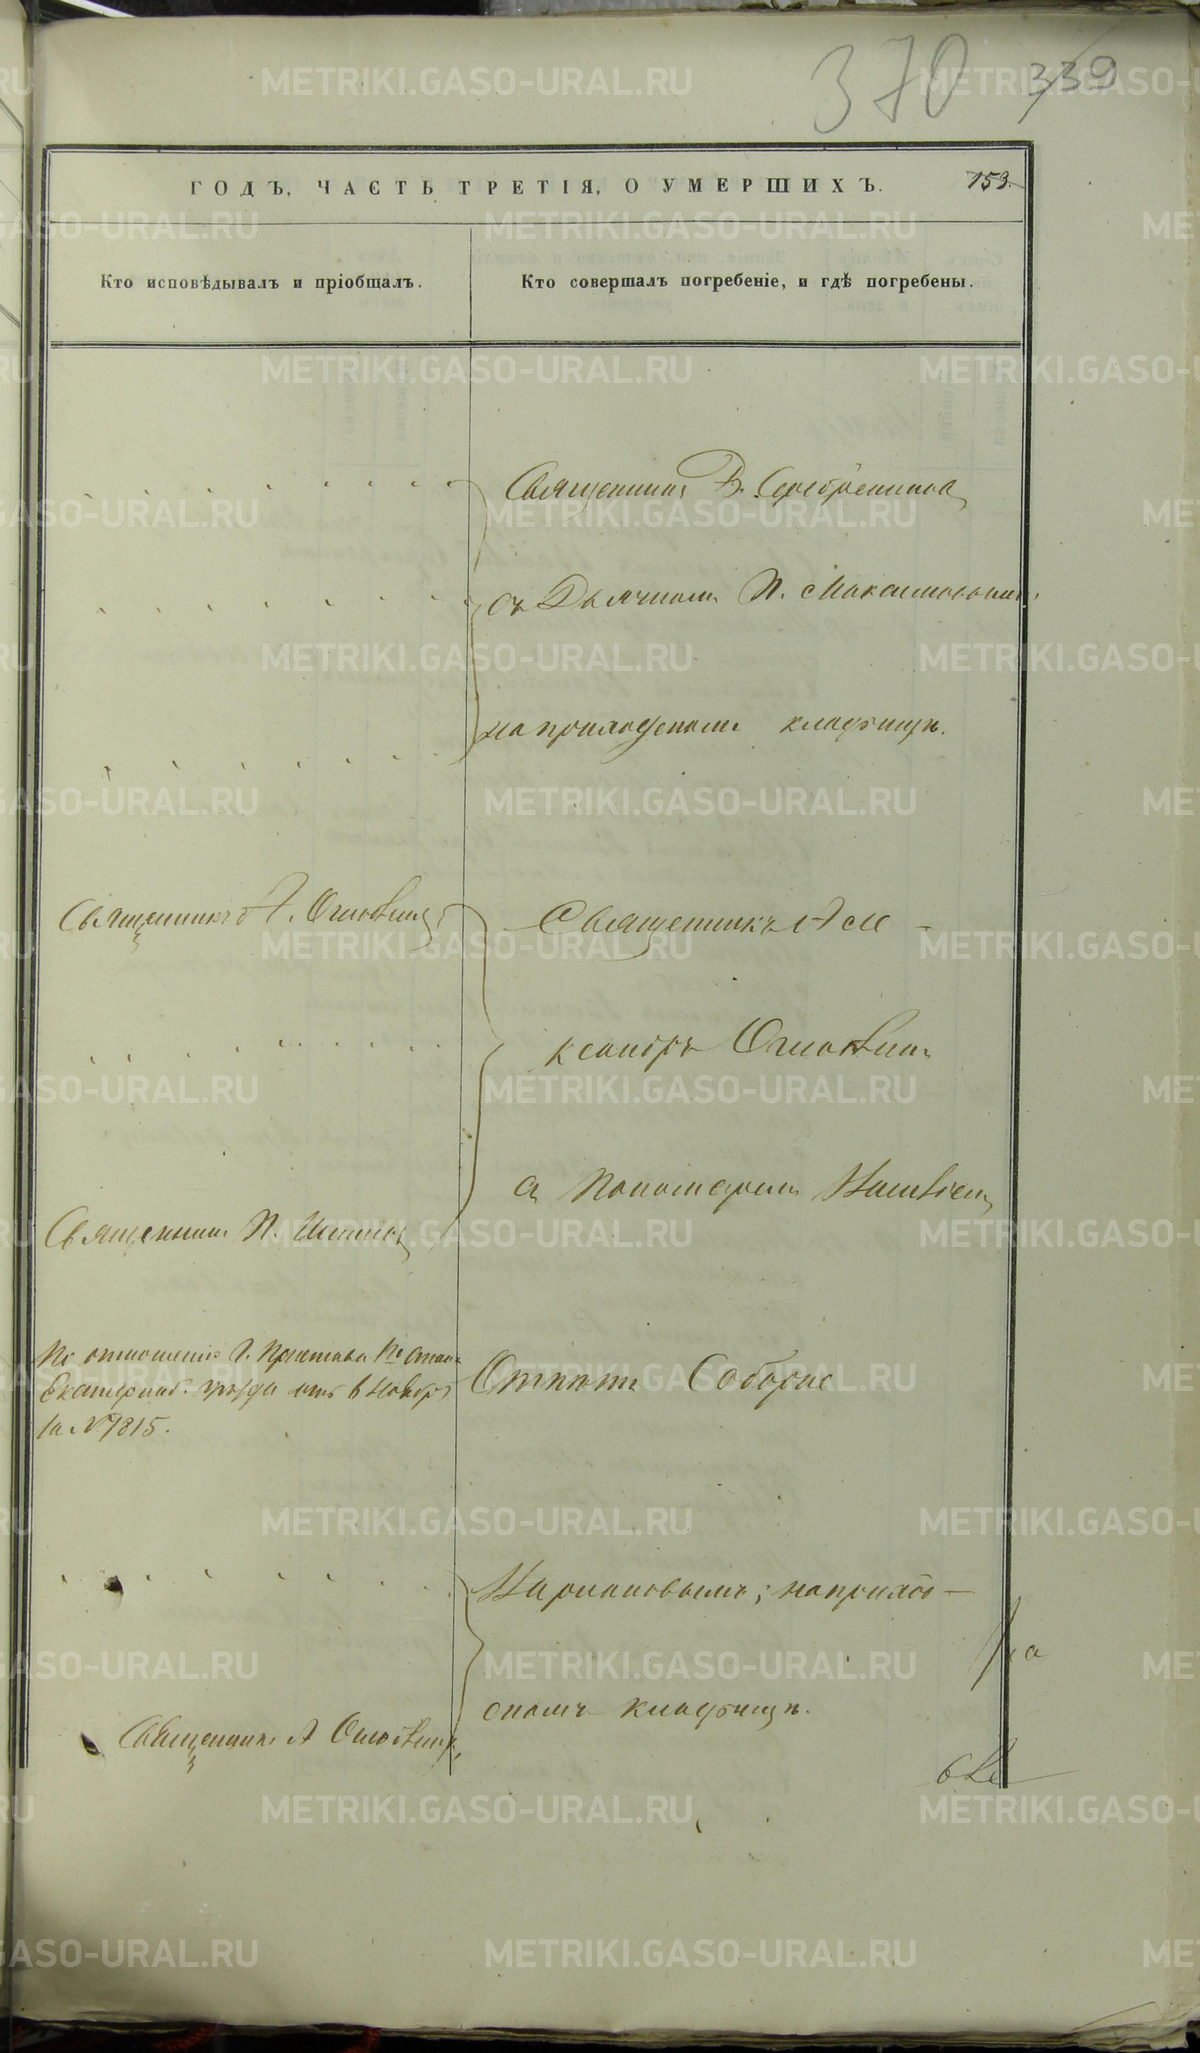 370 339
ГОДЪ, ЧАСТЬ ТРЕТІЯ, О УМЕРШИХЪ. 153.
Кто исповѣдывалъ и пріобщалъ. Кто совершалъ погребеніе, и гдѣ погребены.
Священникъ В. Серебренниковъ
съ Дьячкомъ П. Максимовымъ
на приходскомъ кладбищѣ.
Священникъ А. Священникъ Але-
ксандръ
съ Пономаремъ
Священникъ П.
По отношенію Г. Пристава 1го Стана
Екатеринб. уѣзда отъ 6 Ноября
за № 7815. Отпѣтъ Соборне
на приход-
скомъ кладбищѣ.
Священникъ А
METRIKI.GASO-URAL.RU